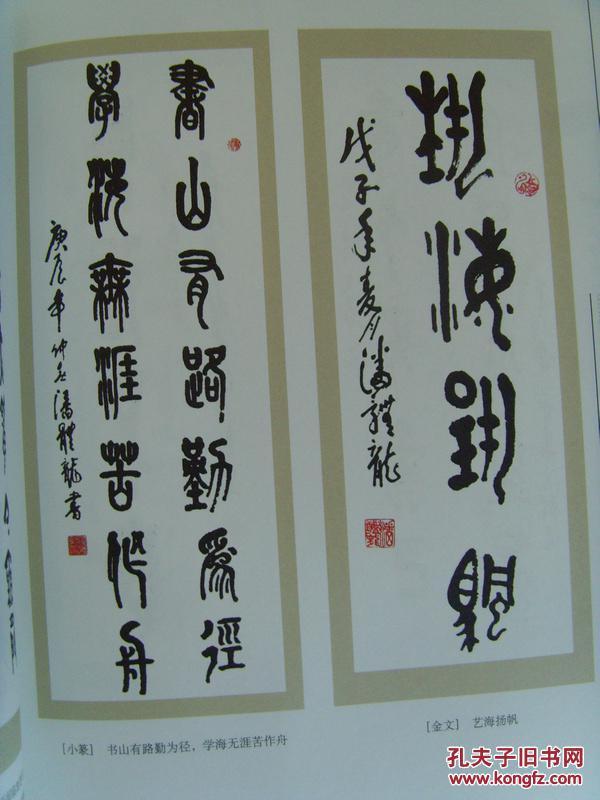 執海陽颿
戊子年夏月潘體龍
書山有路勤為徑
學海無涯苦作舟
庚辰年仲冬潘體龍書
[金文] 艺海扬帆
[小篆] 书山有路勤为径，学海无涯苦作舟
孔夫子旧书网
www.kongfz.com